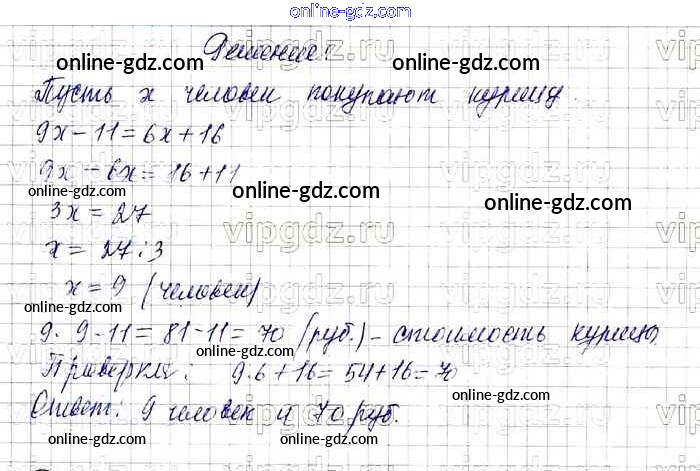 online-gdz.com
Решение:
Пусть x человек покупают курицу.
9x - 11 = 6x + 16
9x - 6x = 16 + 11
3x = 27
x = 27 : 3
x = 9 (человек)
9 · 9 - 11 = 81 - 11 = 70 (руб.) - стоимость курицы.
Проверка: 9 · 6 + 16 = 54 + 16 = 70
Ответ: 9 человек и 70 руб.
online-gdz.com
online-gdz.com
online-gdz.com
online-gdz.com
online-gdz.com
online-gdz.com
online-gdz.com
online-gdz.com
online-gdz.com
online-gdz.com
online-gdz.com
online-gdz.com
online-gdz.com
vipgdz.ru
vipgdz.ru
vipgdz.ru